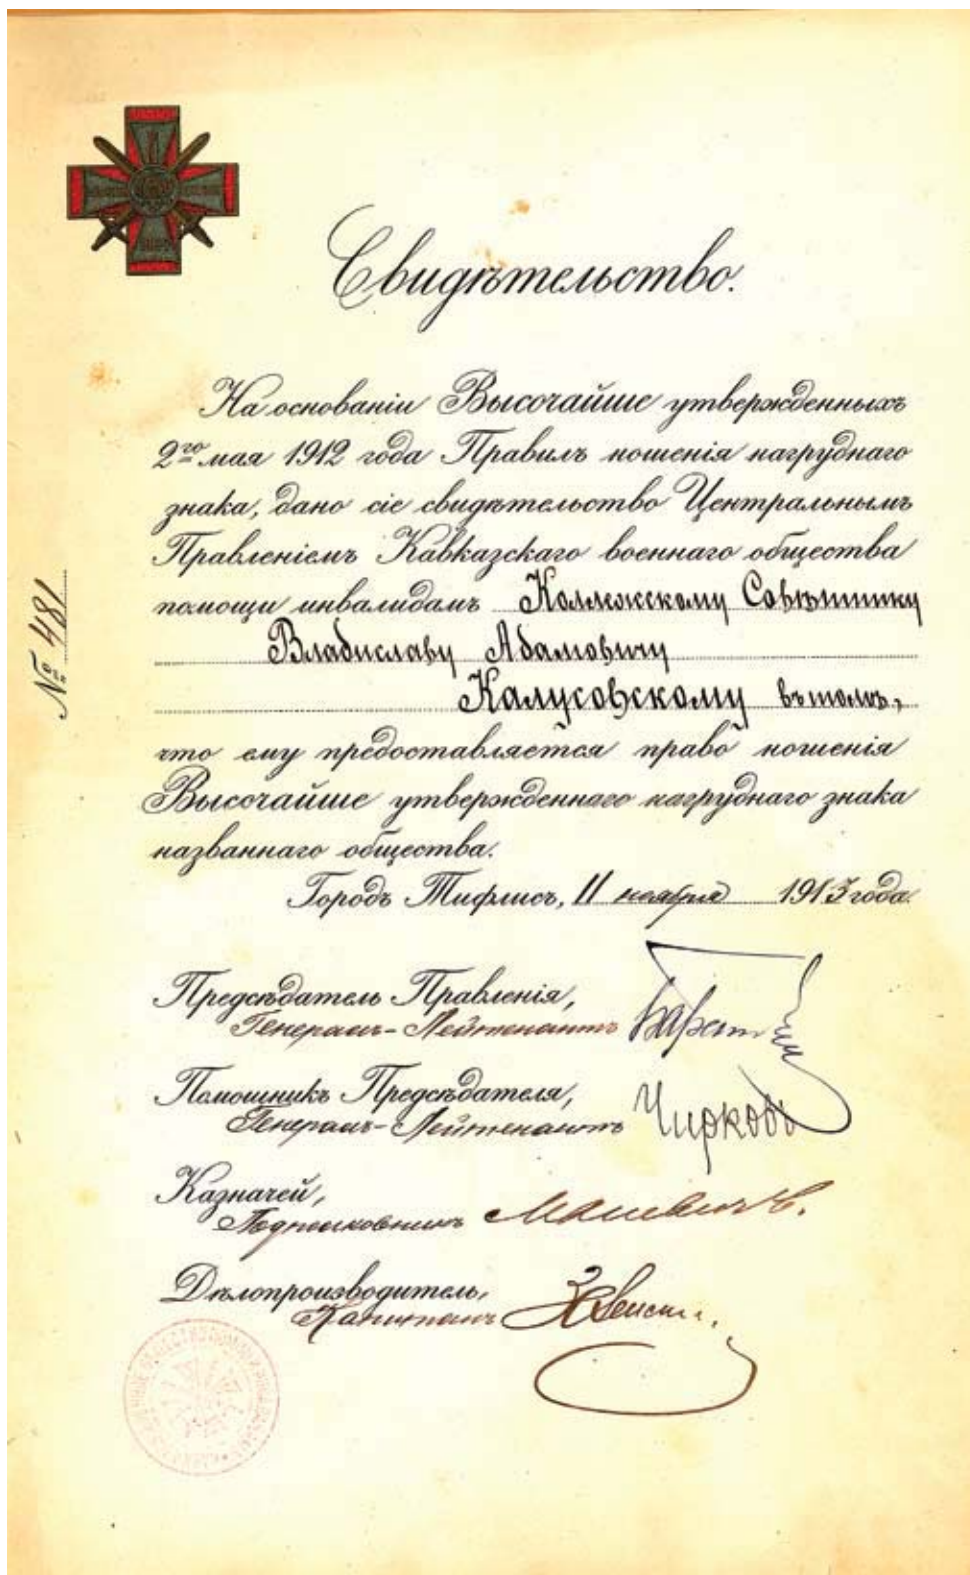 Свидѣтельство.
На основаніи Высочайше утвержденныхъ
2го мая 1912 года Правилъ ношенія нагруднаго
знака, дано сіе свидѣтельство Центральнымъ
Правленіемъ Кавказскаго военнаго общества
помощи инвалидамъ Коллежскому Совѣтнику
Владиславу Адамовичу
Калусовскому въ томъ,
что ему предоставляется право ношенія
Высочайше утвержденнаго нагруднаго знака
названнаго общества.
Городъ Тифлисъ, 11 ноября 1913 года.
№ 481
Предсѣдатель Правленія,
Генералъ-Лейтенантъ
Помощникъ Предсѣдателя,
Генералъ-Лейтенантъ Чирковъ
Казначей,
Подполковникъ
Дѣлопроизводитель,
Капитанъ